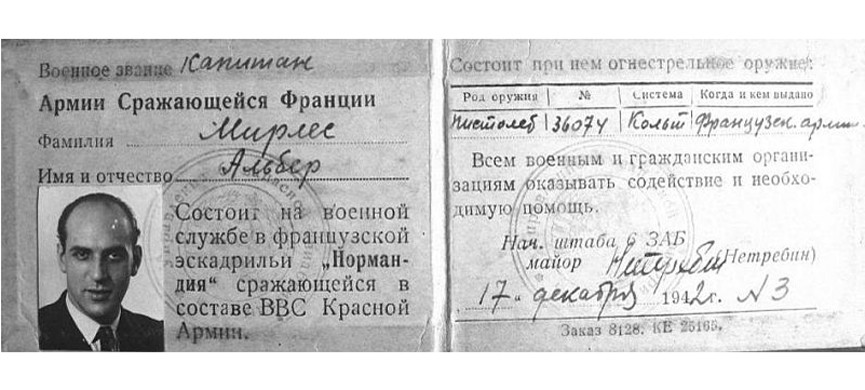 Военное звание Капитан
Армии Сражающейся Франции
Фамилия Мирлес
Имя и отчество Альбер
Состоит на военной
службе в французской
эскадрильи „Норман-
дия“ сражающейся в
составе ВВС Красной
Армии.
Состоит при нем огнестрельное оружие:
Род оружия № Система Когда и кем выдано
Пистолет 36074 Кольт Французск. арми
Всем военным и гражданским органи-
зациям оказывать содействие и необхо-
димую помощь.
Нач. штаба 6 ЗАБ
майор (Нетребин)
„17“ декабря 1942 г. N3
Заказ 8128. КЕ 25165.